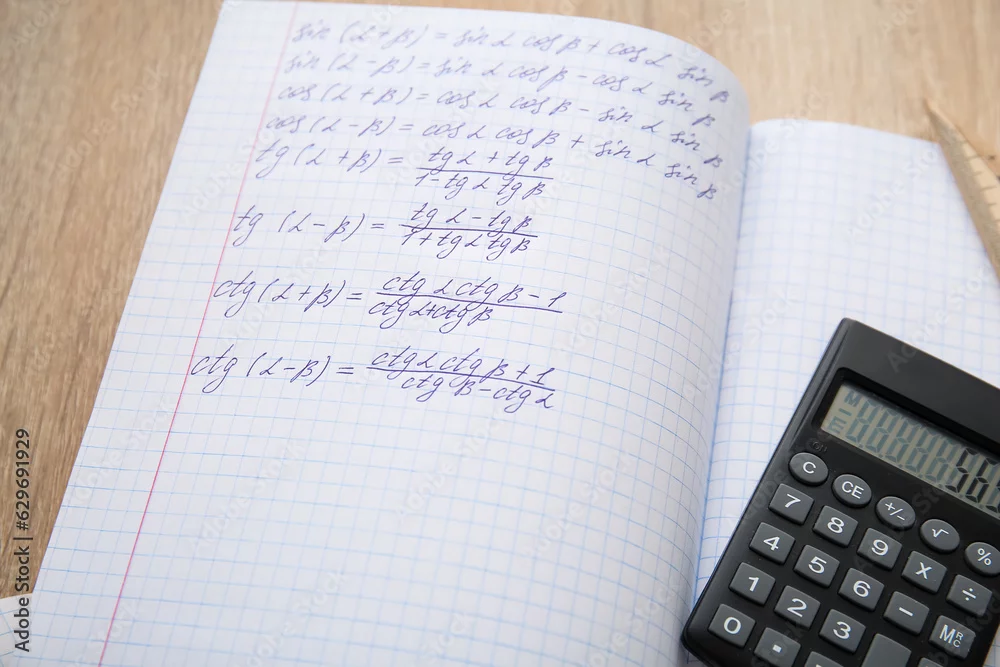 sin (α+β) = sin α cos β + cos α sin β
sin (α-β) = sin α cos β - cos α sin β
cos (α+β) = cos α cos β - sin α sin β
cos (α-β) = cos α cos β + sin α sin β
tg (α+β) = tg α + tg β
1 - tg α tg β
tg (α-β) = tg α - tg β
1 + tg α tg β
ctg (α+β) = ctg α ctg β - 1
ctg α + ctg β
ctg (α-β) = ctg α ctg β + 1
ctg β - ctg α
M
-
E
C CE +/- √ %
7 8 9 X ÷
4 5 6 - MRC
1 2 3
0 .
Adobe Stock | #629691929
Adobe Stock